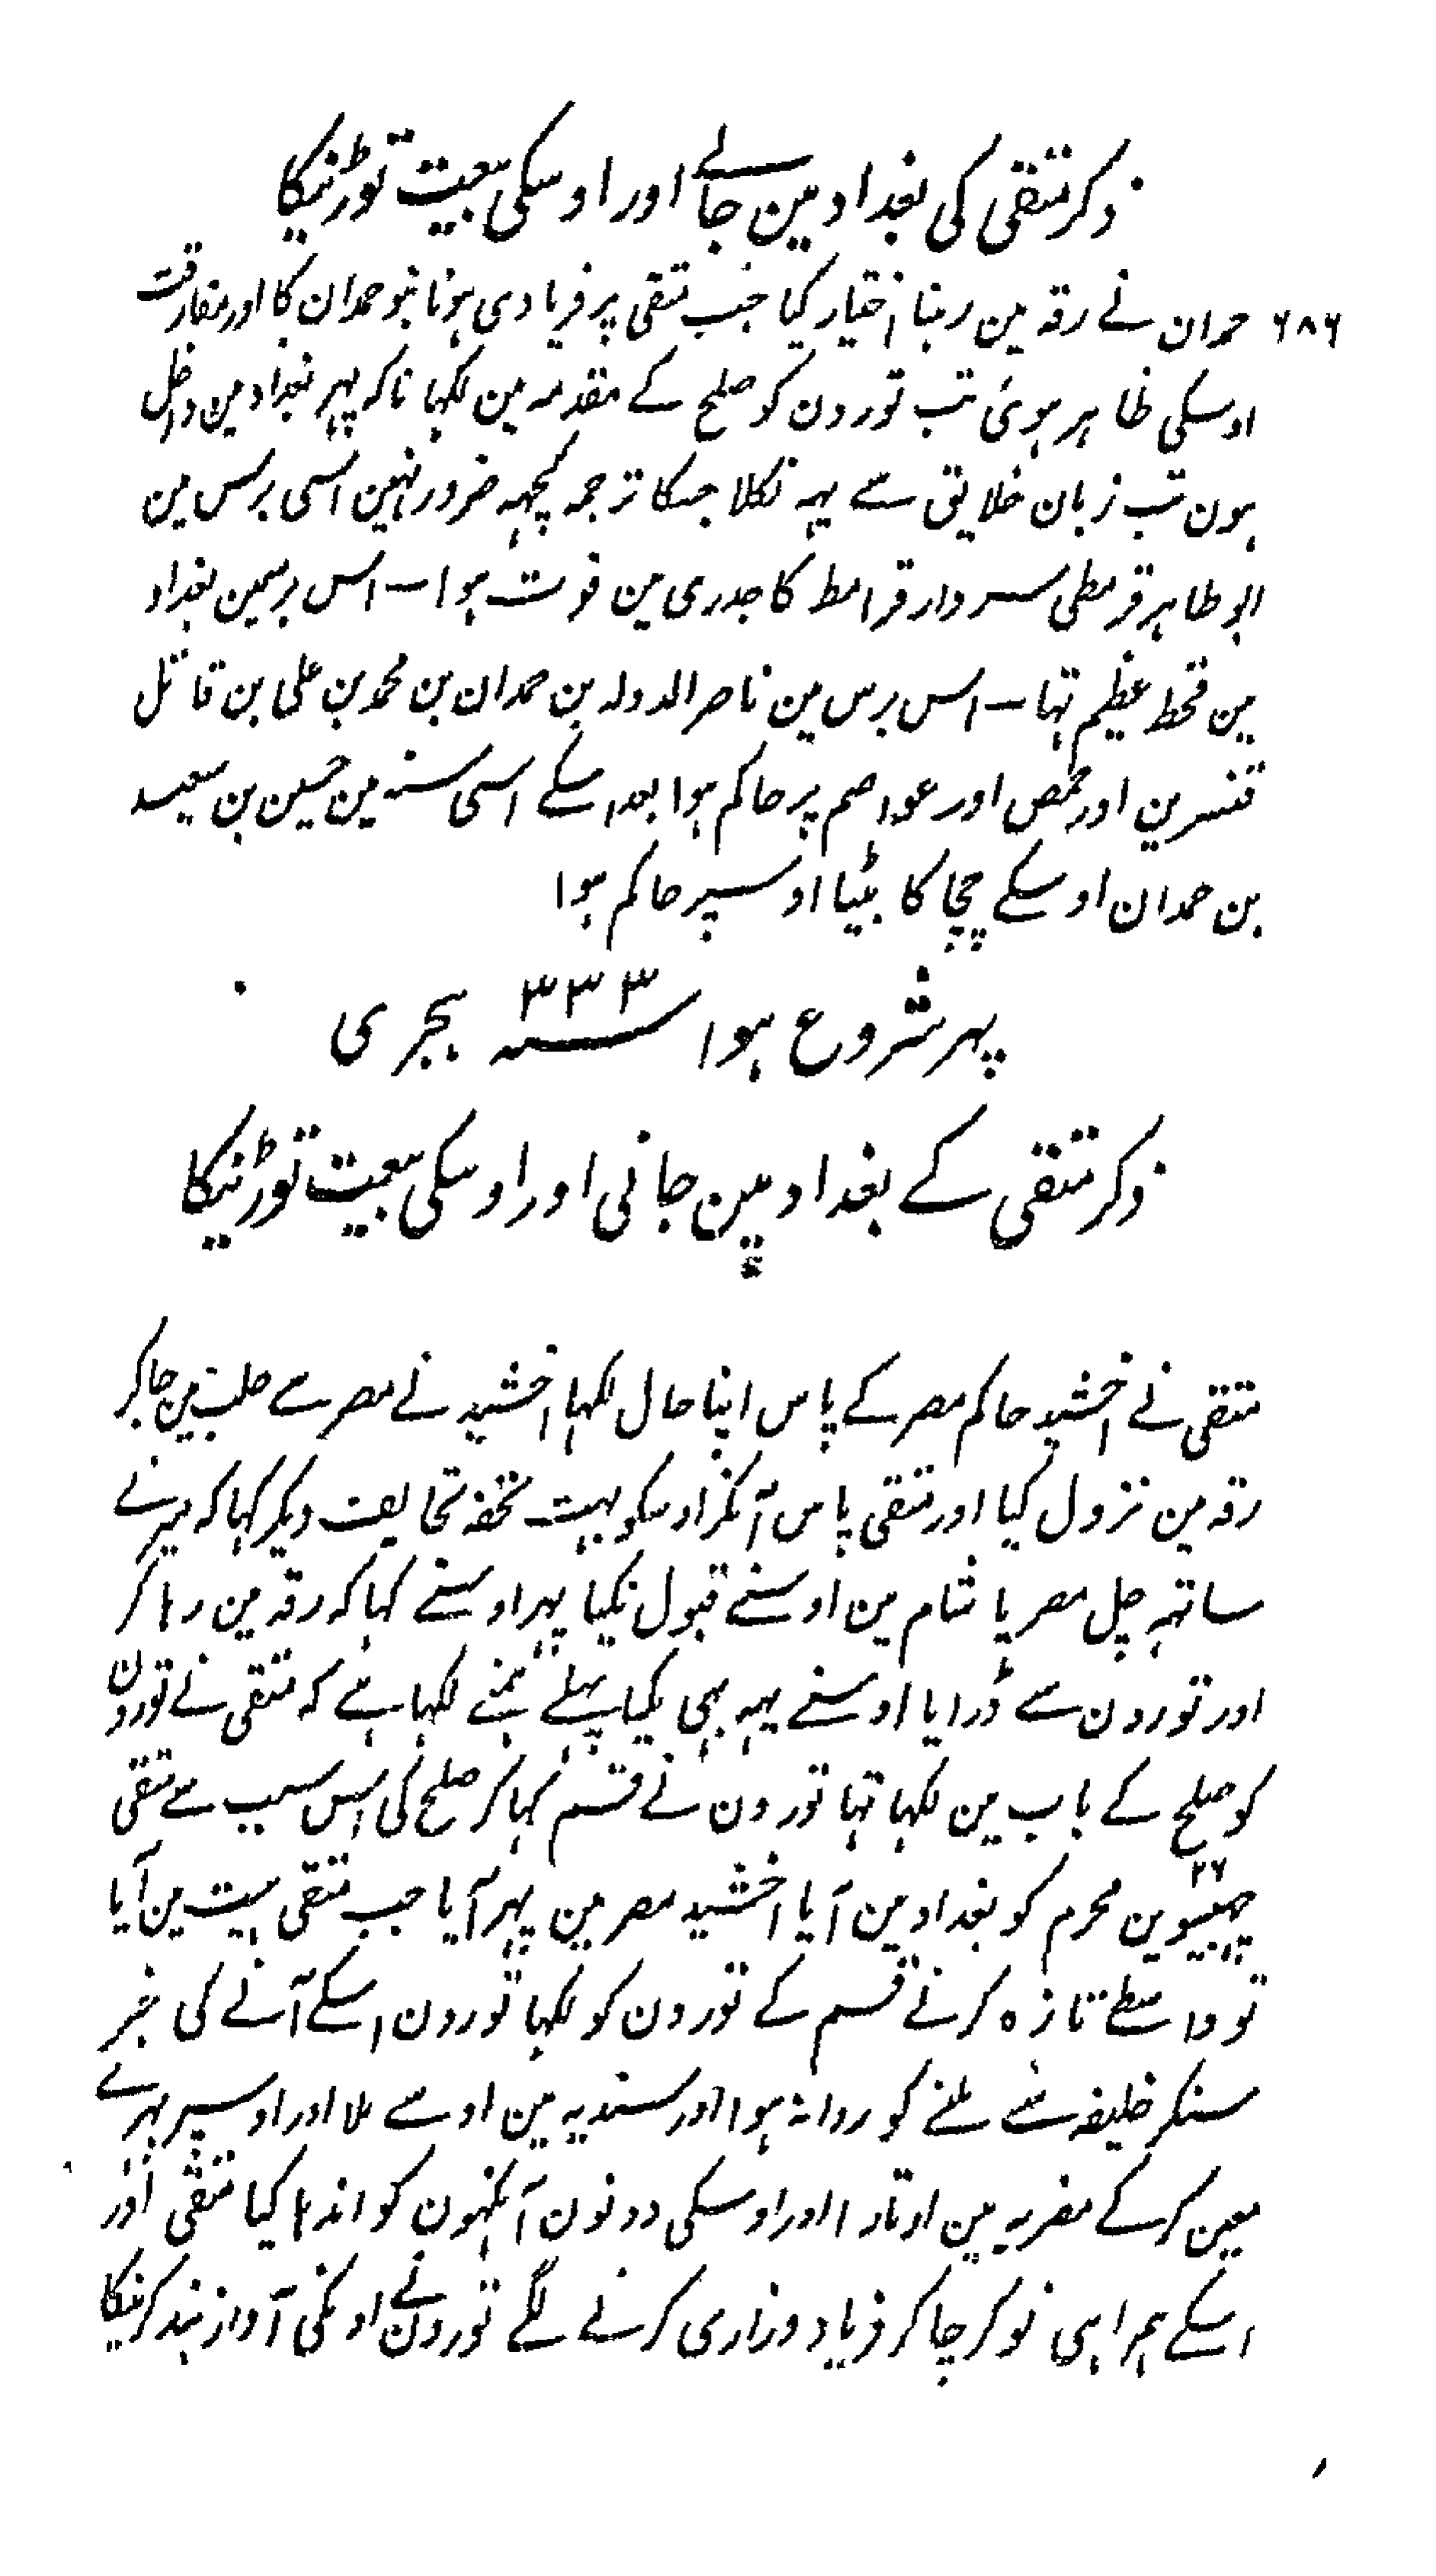 ذکر متقی کی بغداد مین جانے اور اوسکی بیعت توڑنیکا
۶۸۶ حمدان نے رقہ مین رہنا اختیار کیا جب متقی پر فریادی ہونا بنو حمدان کا اور مفارقت
اوسکی ظاہر ہوئی تب توردن کو صلح کے مقدمہ مین لکھا تاکہ پہر بغداد مین داخل
ہون تب زبان خلایق سے یہہ نکلا جسکا ترجمہ کچہہ ضرور نہین اسی برس مین
ابو طاہر قرمطی سردار قرامط کا جدری مین فوت ہوا۔ اس برسمین بغداد
مین قحط عظیم تہا۔ اس برس مین ناصر الدولہ بن حمدان بن محمد بن علی بن قاتل
قنسرین اور حمص اور عواصم پر حاکم ہوا بعد اسکے اسی سنہ مین حسین بن سعید
بن حمدان اوسکے چچا کا بیٹا اوسپر حاکم ہوا
پہر شروع ہوا سنہ ۳۳۳ ہجری
ذکر متقی کے بغداد مین جانی اور اوسکی بیعت توڑنیکا
متقی نے اخشید حاکم مصر کے پاس اپنا حال لکہا اخشید نے مصر سے حلب مین جاکر
رقہ مین نزول کیا اور متقی پاس آنکر اوسکو بہت تحفہ تحایف دیکر کہا کہ میرے
ساتہہ چل مصر یا شام مین اوسنے قبول نکیا پہر اوسنے کہا کہ رقہ مین رہا کر
اور توردن سے ڈرایا اوسنے یہہ بہی نکیا پہلے ہمنے لکہا ہے کہ متقی نے توردن
کو صلح کے باب مین لکہا تہا توردن نے قسم کہاکر صلح کی اس سبب سے متقی
۲۶
چہبیسوین محرم کو بغداد مین آیا اخشید مصر مین پہر آیا جب متقی ہیت مین آیا
تو واسطے تازہ کرنے قسم کے توردن کو لکہا توردن اسکے آنے کی خبر
سنکر خلیفہ سے ملنے کو روانہ ہوا اور سندیہ مین اوسے ملا اور اوسپر پہرے
معین کرکے مضربہ مین اوتارا اور اوسکی دونون آنکہون کو اندہا کیا متقی اور
اسکے ہمراہی نوکر چاکر فریاد و زاری کرنے لگے توردن نے اونکی آواز بند کرنیکا